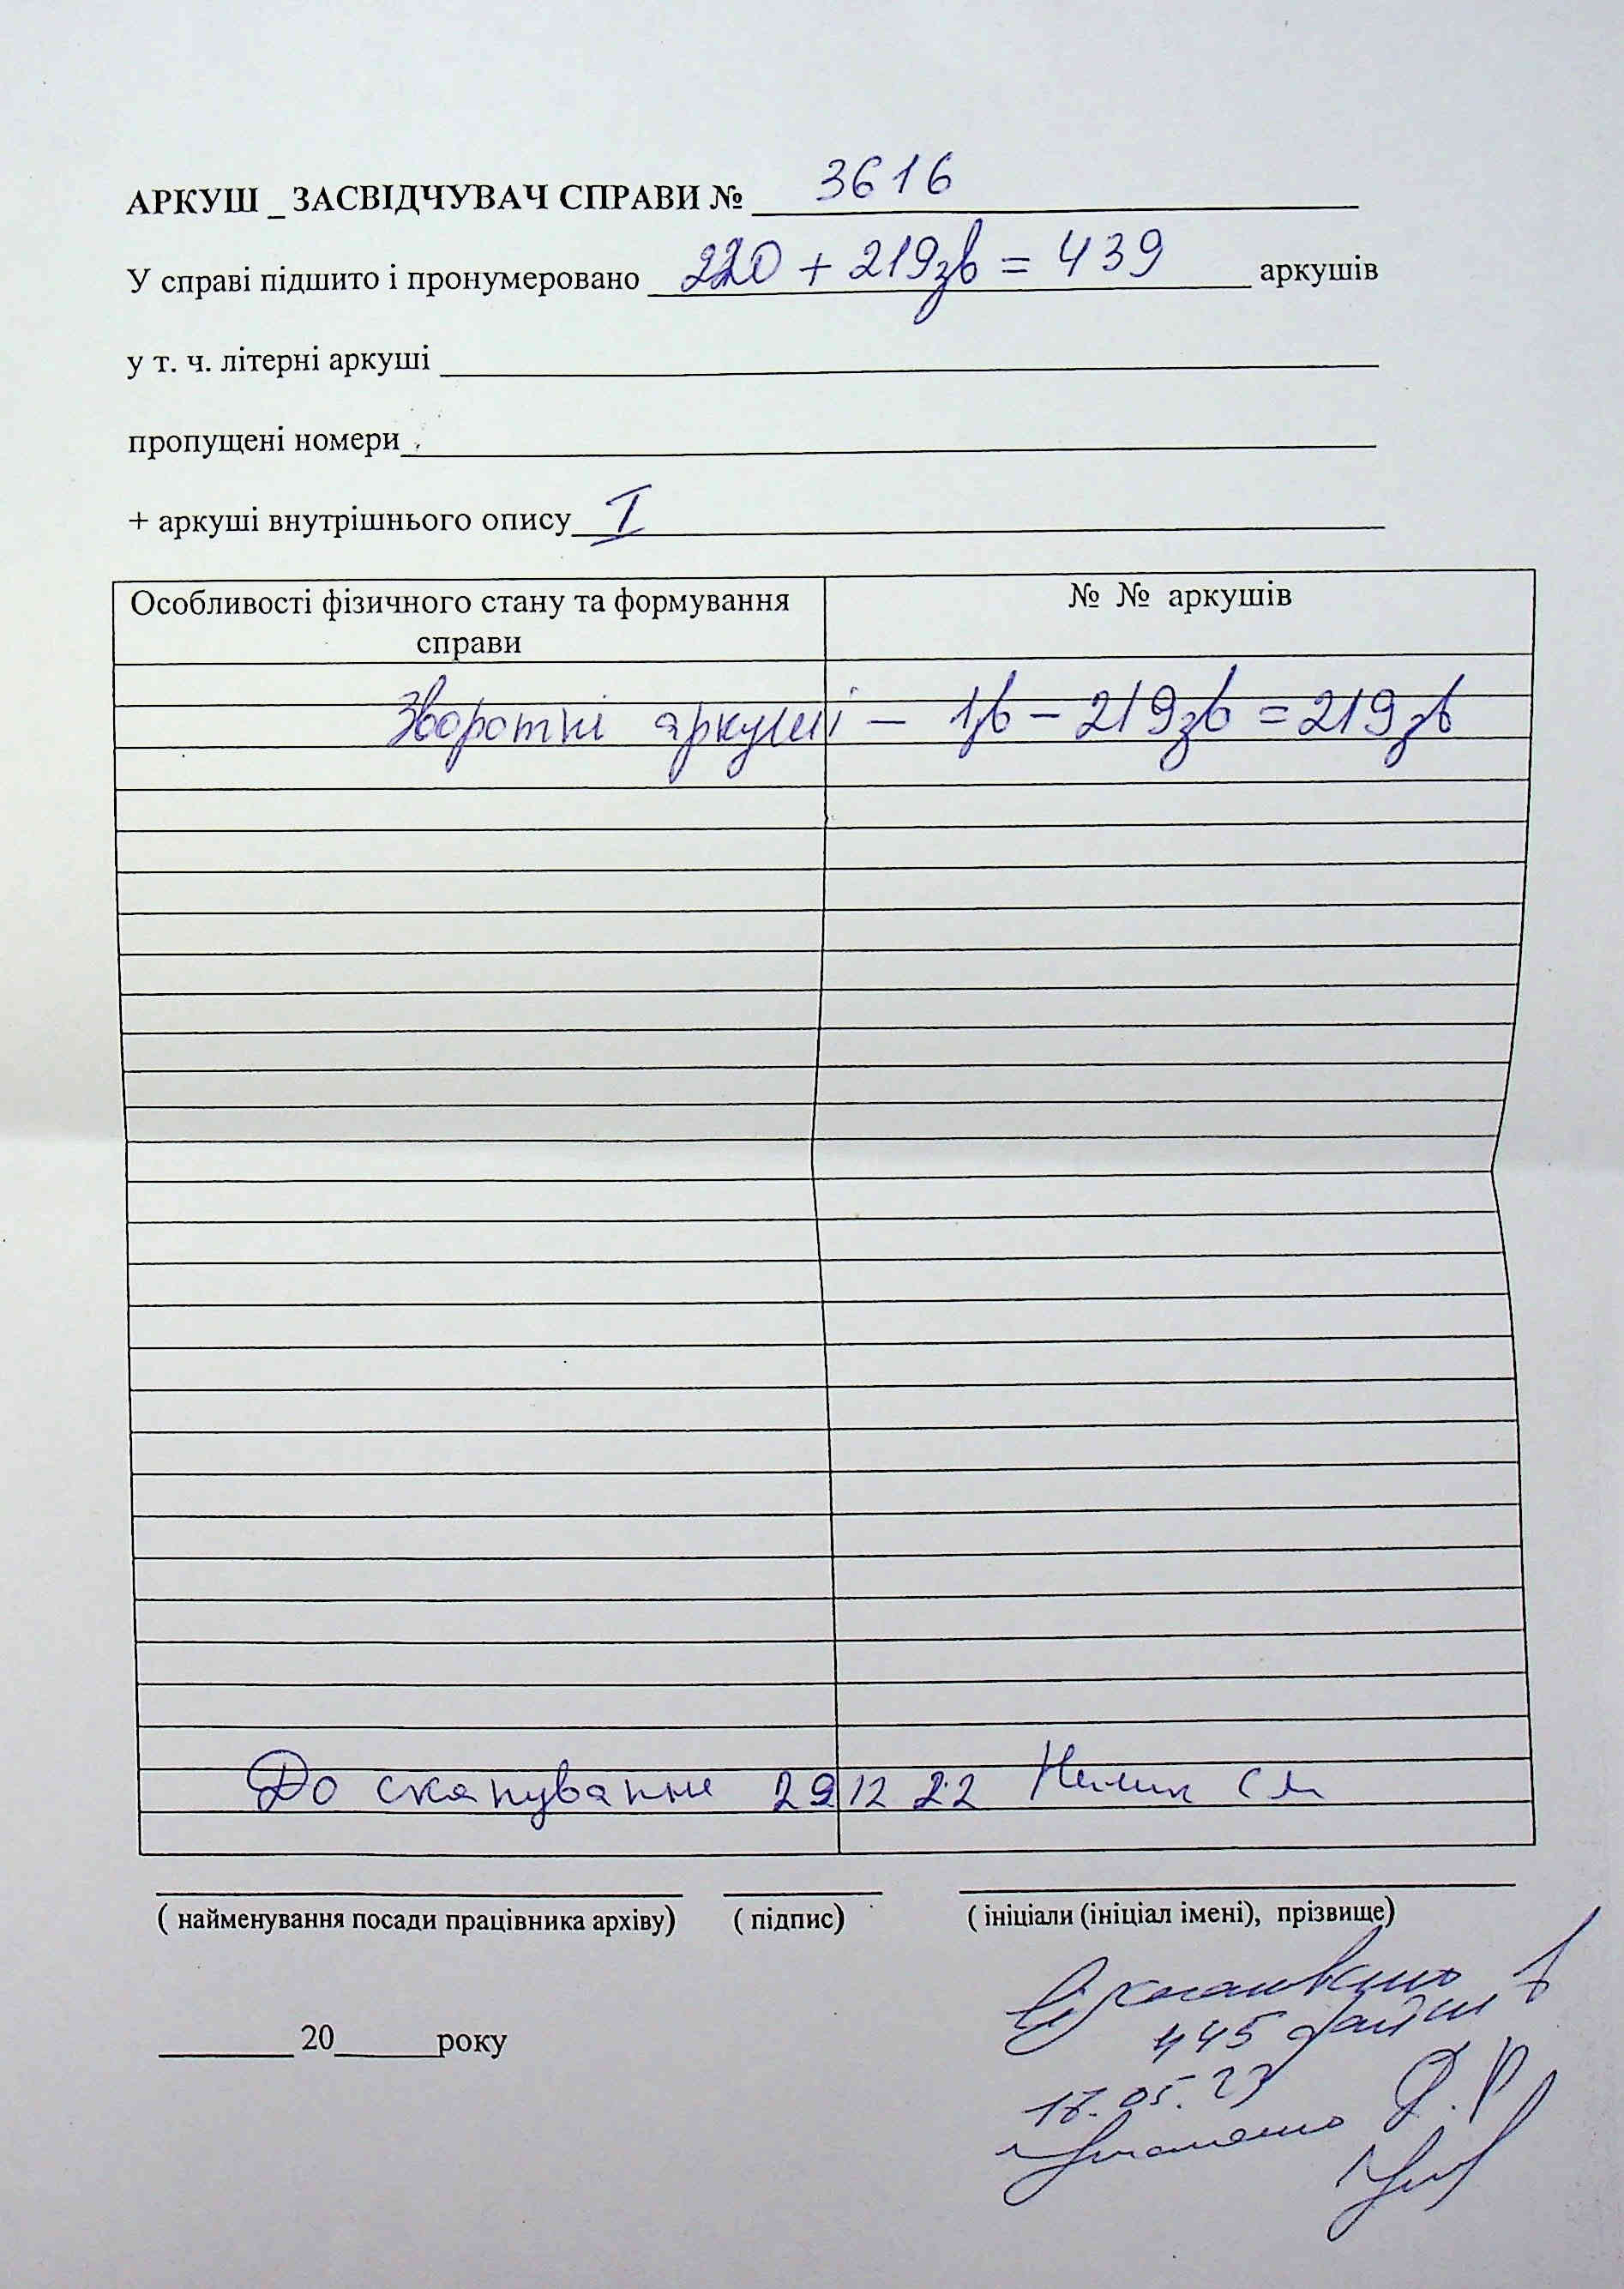 АРКУШ _ ЗАСВІДЧУВАЧ СПРАВИ № 3616
У справі підшито і пронумеровано 220 + 219зв = 439 аркушів
у т. ч. літерні аркуші
пропущені номери
+ аркуші внутрішнього опису I
Особливості фізичного стану та формування № № аркушів
справи
Зворотні аркуші – 1зв – 219зв = 219зв
До сканування 29 12 22
( найменування посади працівника архіву) ( підпис) ( ініціали (ініціал імені), прізвище)
Відскановано
445 файлів
20 року
17.05.23